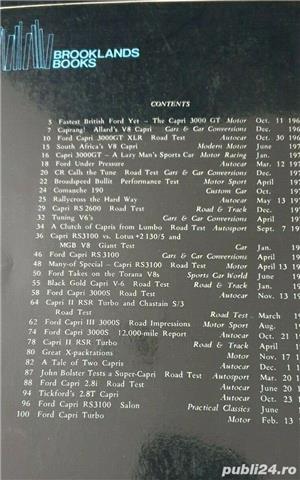 BROOKLANDS
BOOKS
CONTENTS
5 Fastest British Ford Yet – The Capri 3000 GT Motor Oct. 11 196
7 Caprang! Allard's V8 Capri Cars & Car Conversions Dec. 196
10 Ford Capri 3000GT XLR Road Test Autocar Oct. 30 196
15 South Africa's V8 Capri Modern Motor June 197
16 Capri 3000GT – A Lazy Man's Sports Car Motor Racing Jan. 197
18 Ford Under Pressure Autocar March 12 197
20 CR Calls the Tune Road Test Cars & Car Conversions Dec. 197
22 Broadspeed Bullit Performance Test Motor Sport April 197
24 Comanche 190 Custom Car Oct. 197
25 Rallycross the Hard Way Autocar May 13 197
29 Capri RS 2600 Road Test Road & Track Dec. 197
32 Tuning V6's Cars & Car Conversions April 197
34 A Clutch of Capris from Lumbo Road Test Autosport Sept. 7 197
36 Capri RS3100 vs. Lotus +2 130/5 and
MGB V8 Giant Test Car Jan. 197
46 Ford Capri RS3100 Cars & Car Conversions April 197
48 Many-of Special – Capri RS3100 Road Test Motor April 13 19
50 Ford Takes on the Torana V8s Sports Car World June 19
55 Black Gold Capri V-6 Road Test Road & Track Jan. 19
58 Ford Capri 3000S Road Test Autocar Nov. 13 19
64 Capri II RSR Turbo and Chastain S/3
Road Test Road Test March 19
62 Ford Capri III 3000S Road Impressions Motor Sport Aug.
74 Ford Capri 3000S 12,000-mile Report Autocar Oct. 21 19
78 Capri II RSR Turbo Road & Track April 19
80 Great X-packtations Motor Nov. 17 1
82 A Tale of Two Capris Autocar Dec. 1 1
87 John Bolster Tests a Super-Capri Road Test Autosport Mar. 20 1
88 Ford Capri 2.8i Road Test Autocar June 20 1
94 Tickford's 2.8T Capri Autocar Oct. 23
96 Ford Capri RS3100 Salon Practical Classics June
100 Ford Capri Turbo Motor Feb. 13
publi24.ro